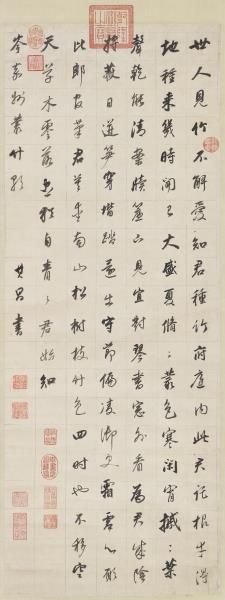 世人見竹不解愛知君種竹府庭内此君託根幸得
地種來幾時聞已大盛夏翛〻叢色寒閒宵槭〻葉
聲乾能清案牘簾下見宜對琴書窓外看為君成陰
將蔽日迸筍穿堦踏還出守節偏凌御史霜虛心願
比郎官筆君莫愛南山松樹枝竹色四時也不移寒
天草木零落盡猶自青〻君始知
岑嘉州叢竹歌 其昌書